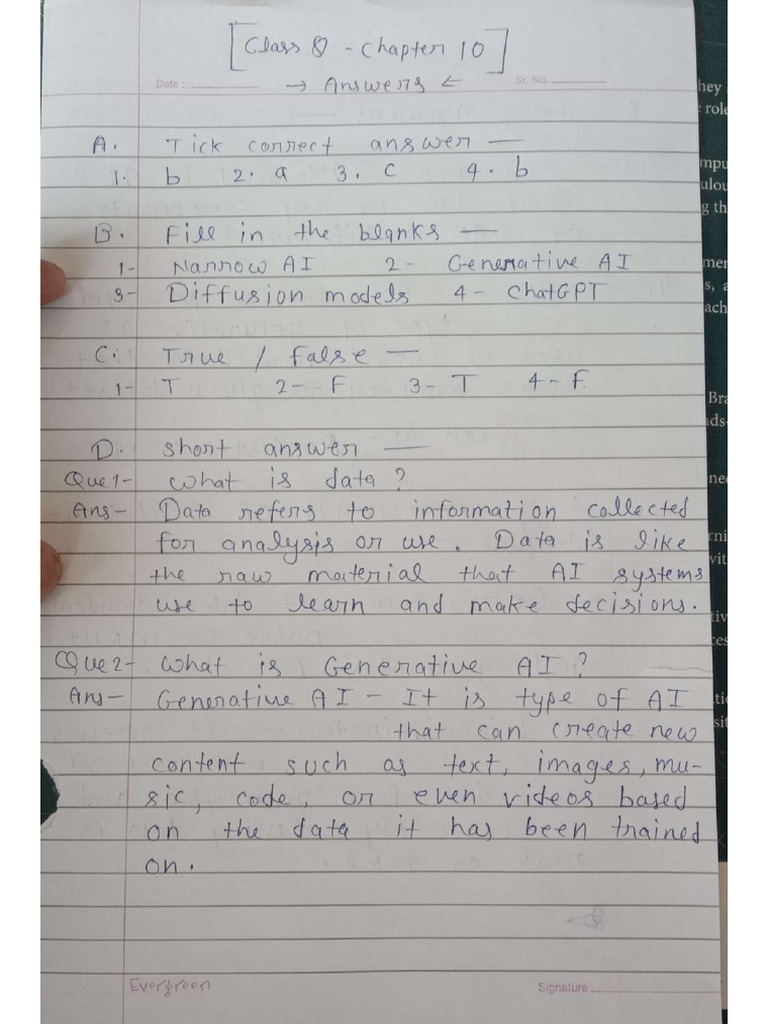 [Class 8 - Chapter 10]
Date : Sr. No.
→ Answers ←
A. Tick correct answer —
1. b 2. a 3. c 4. b
B. Fill in the blanks —
1- Narrow AI 2- Generative AI
3- Diffusion models 4- ChatGPT
C. True / False —
1- T 2- F 3- T 4- F
D. short answer —
Que1- What is data ?
Ans- Data refers to information collected
for analysis or use. Data is like
the raw material that AI systems
use to learn and make decisions.
Que2- What is Generative AI ?
Ans- Generative AI - It is type of AI
that can create new
content such as text, images, mu-
sic, code, or even videos based
on the data it has been trained
on.
Evergreen Signature
hey
role
mpu
ulou
g th
mer
s, a
ach
Bra
ds-
nee